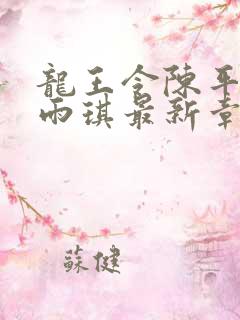 龍王令陳平
雨琪最新章
蘇健